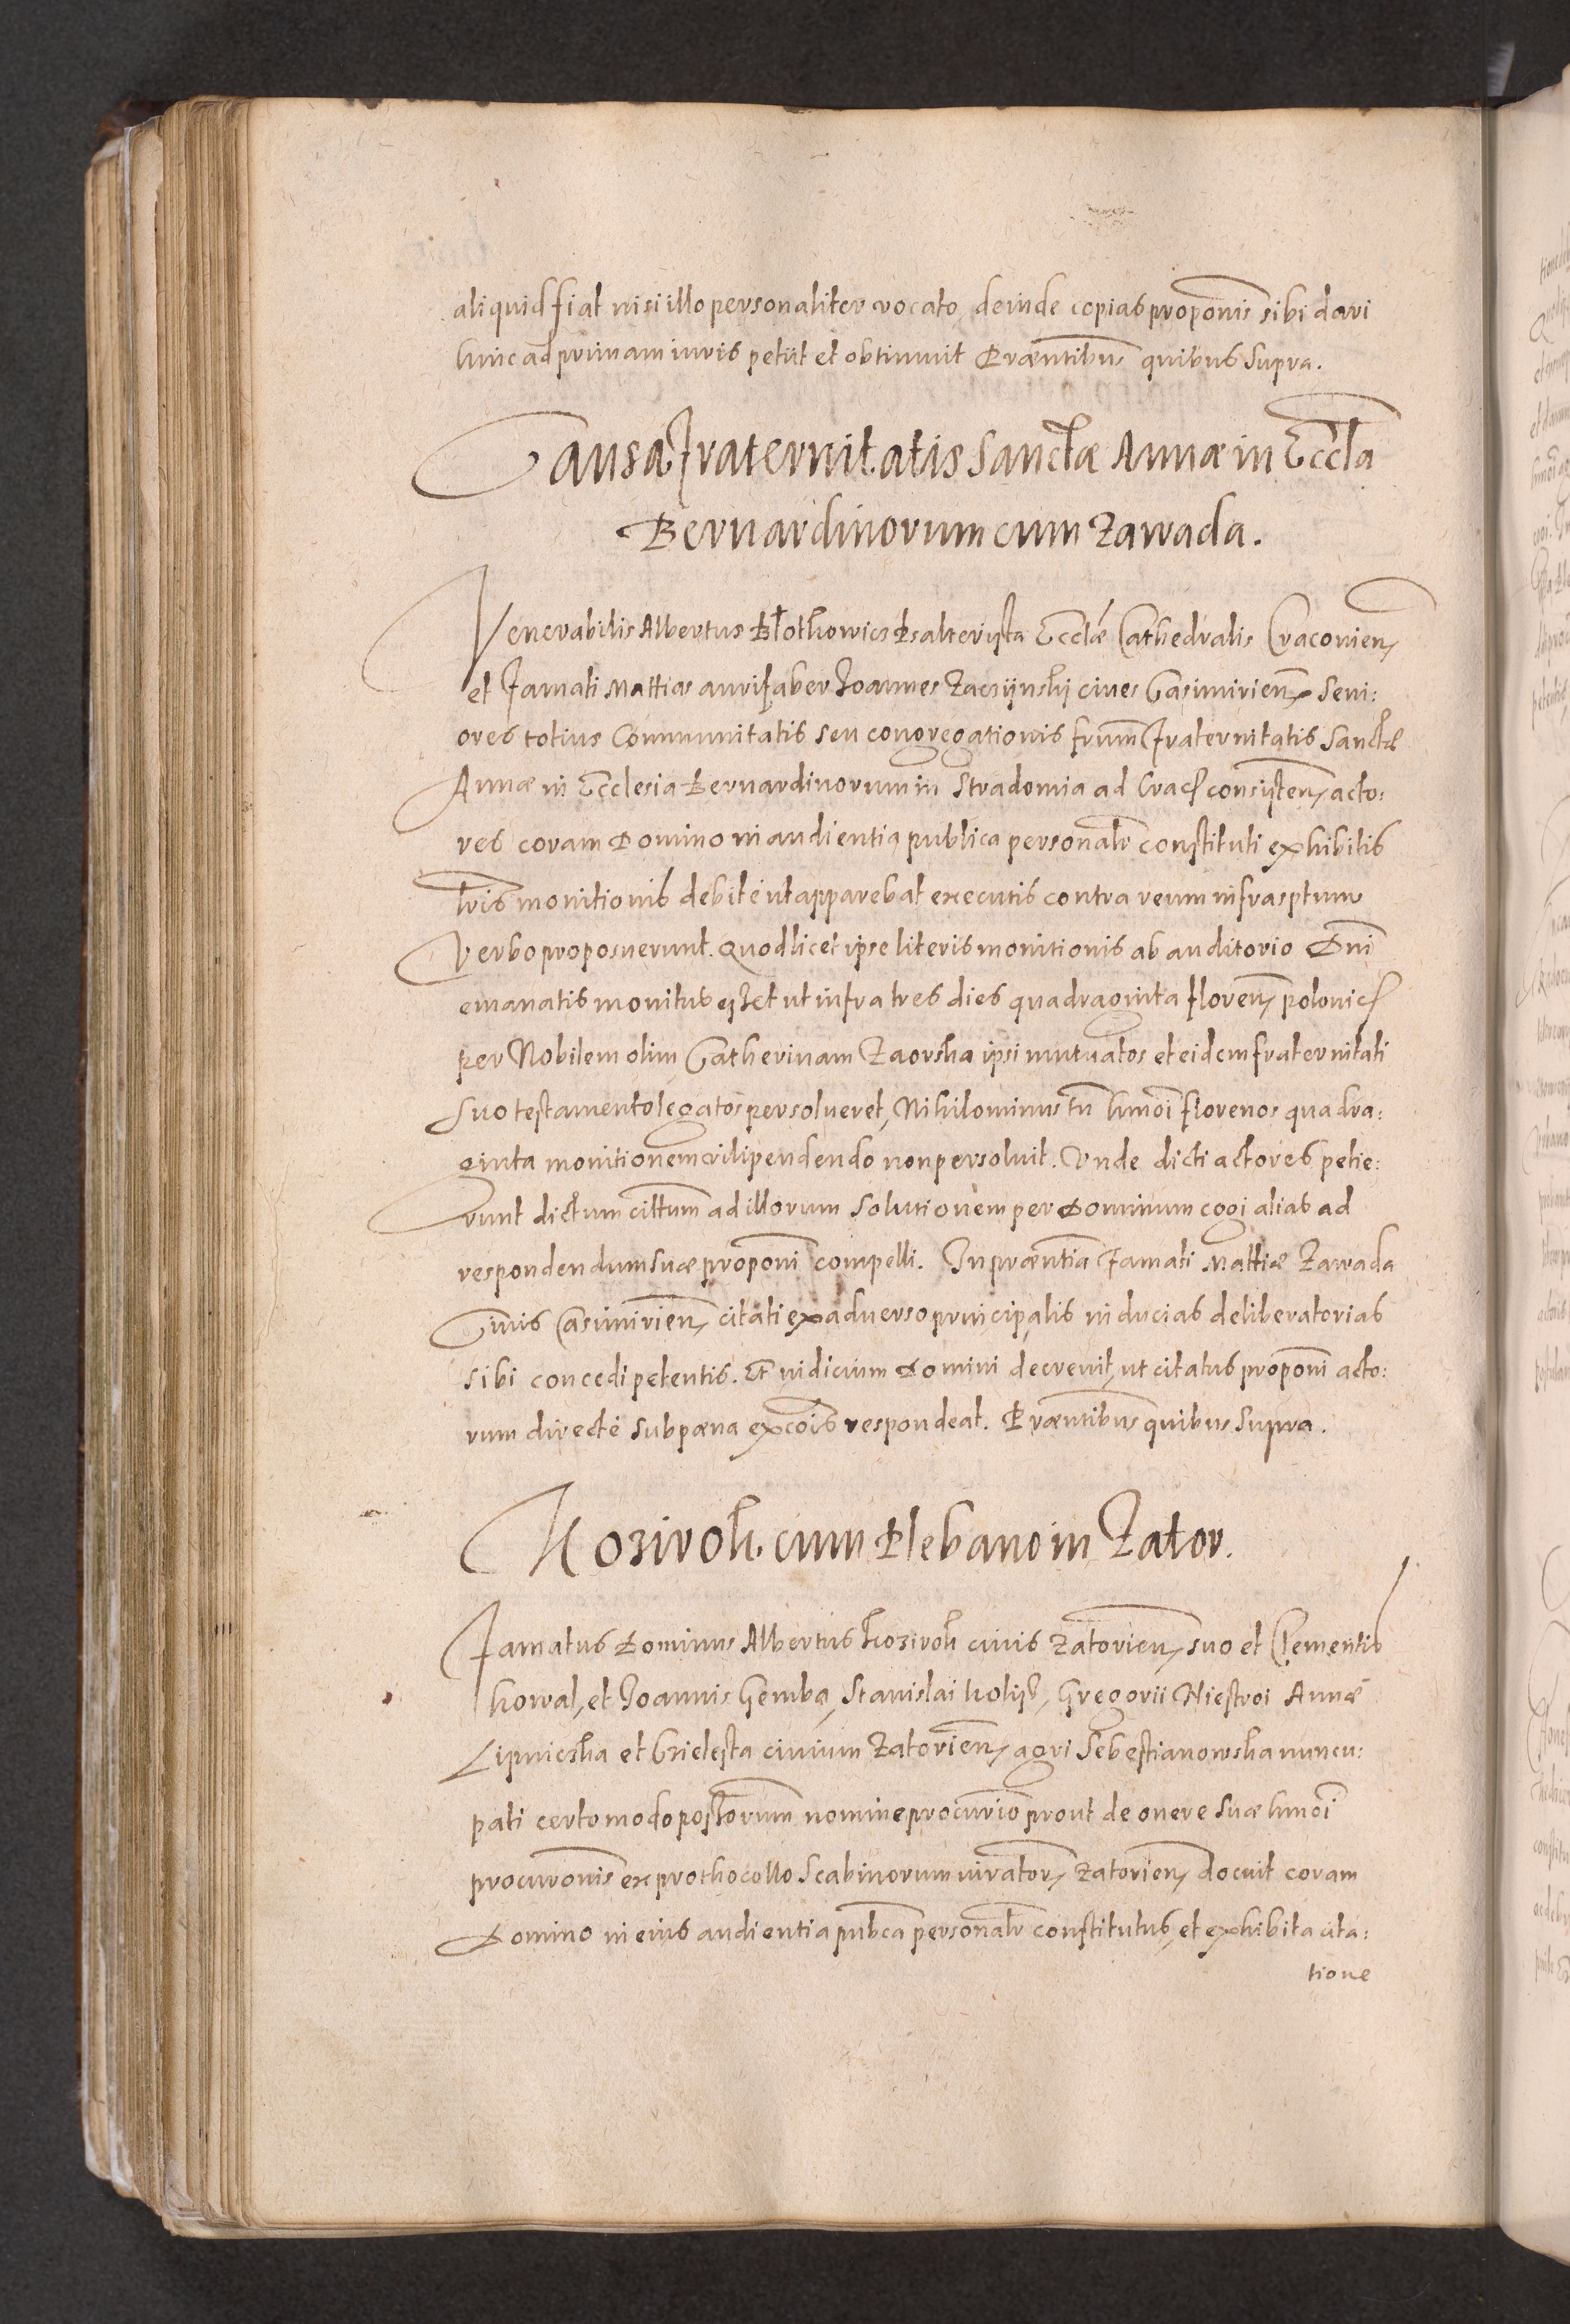 aliquid fiat nisi illo personaliter vocato, deinde copias propōnis sibi dari
hinc ad primam iuris petiit et obtinuit Præntibus quibus supra.
Causa Fraternitatis Sanctæ Annæ in Eccla
Bernardinorum cum Zawada.
Venerabilis Albertus Psalterista Ecclæ Cathedralis Cracovien,
et Famati Mattias aurifaber Joannes Zacziinski cives Casimirien, Seni:
ores totius Communitatis seu congregationis frum Fraternitatis Sanctæ
Annæ in Ecclesia Bernardinorum in Stradomia ad Crac consisten, acto:
res coram Domino in audientia publica personalr constituti exhibitis
lris monitionis debitè ut apparebat executis contra reum infrasptum
Verbo proposuerunt. Quod licet ipse literis monitionis ab auditorio Dni
emanatis monitus ut infra tres dies quadraginta floren, polonic
per Nobilem olim Catherinam Zaorska ipsi mutuatos et eidem fraternitati
suo testamento legatos persolueret, Nihilominus tn hmoi florenos quadra:
ginta monitionem vilipendendo non persoluit. Unde dicti actores petie:
runt dictum cittum ad illorum solutionem per Dominum cogi alias ad
respondendum suæ proponi compelli. In præntia Famati Mattiæ Zawada
Civis Casimirien, citati ex adverso principalis inducias deliberatorias
sibi concedi petentis. Et iudicium Domini decrevit, ut citatus proponi acto:
rum directè sub pæna excois respondeat. Præntibus quibus supra.
Kozirok cum Plebano in Zator.
Famatus Dominus Albertus Kozirok civis Zatorien, suo et Clementis
Kowal, et Joannis Gemba, Stanislai Gregorii Niestroi Annæ
Lipniczka et civium Zatorien, agri Sebestianowska nuncu:
pati certo modo postorum nomine procurio prout de onere suæ hmoi
procuronis ex prothocollo Scabinorum iurator, Zatorien, docuit coram
Domino in eius audientia pubca personalr constitutus, et exhibita cita:
tione